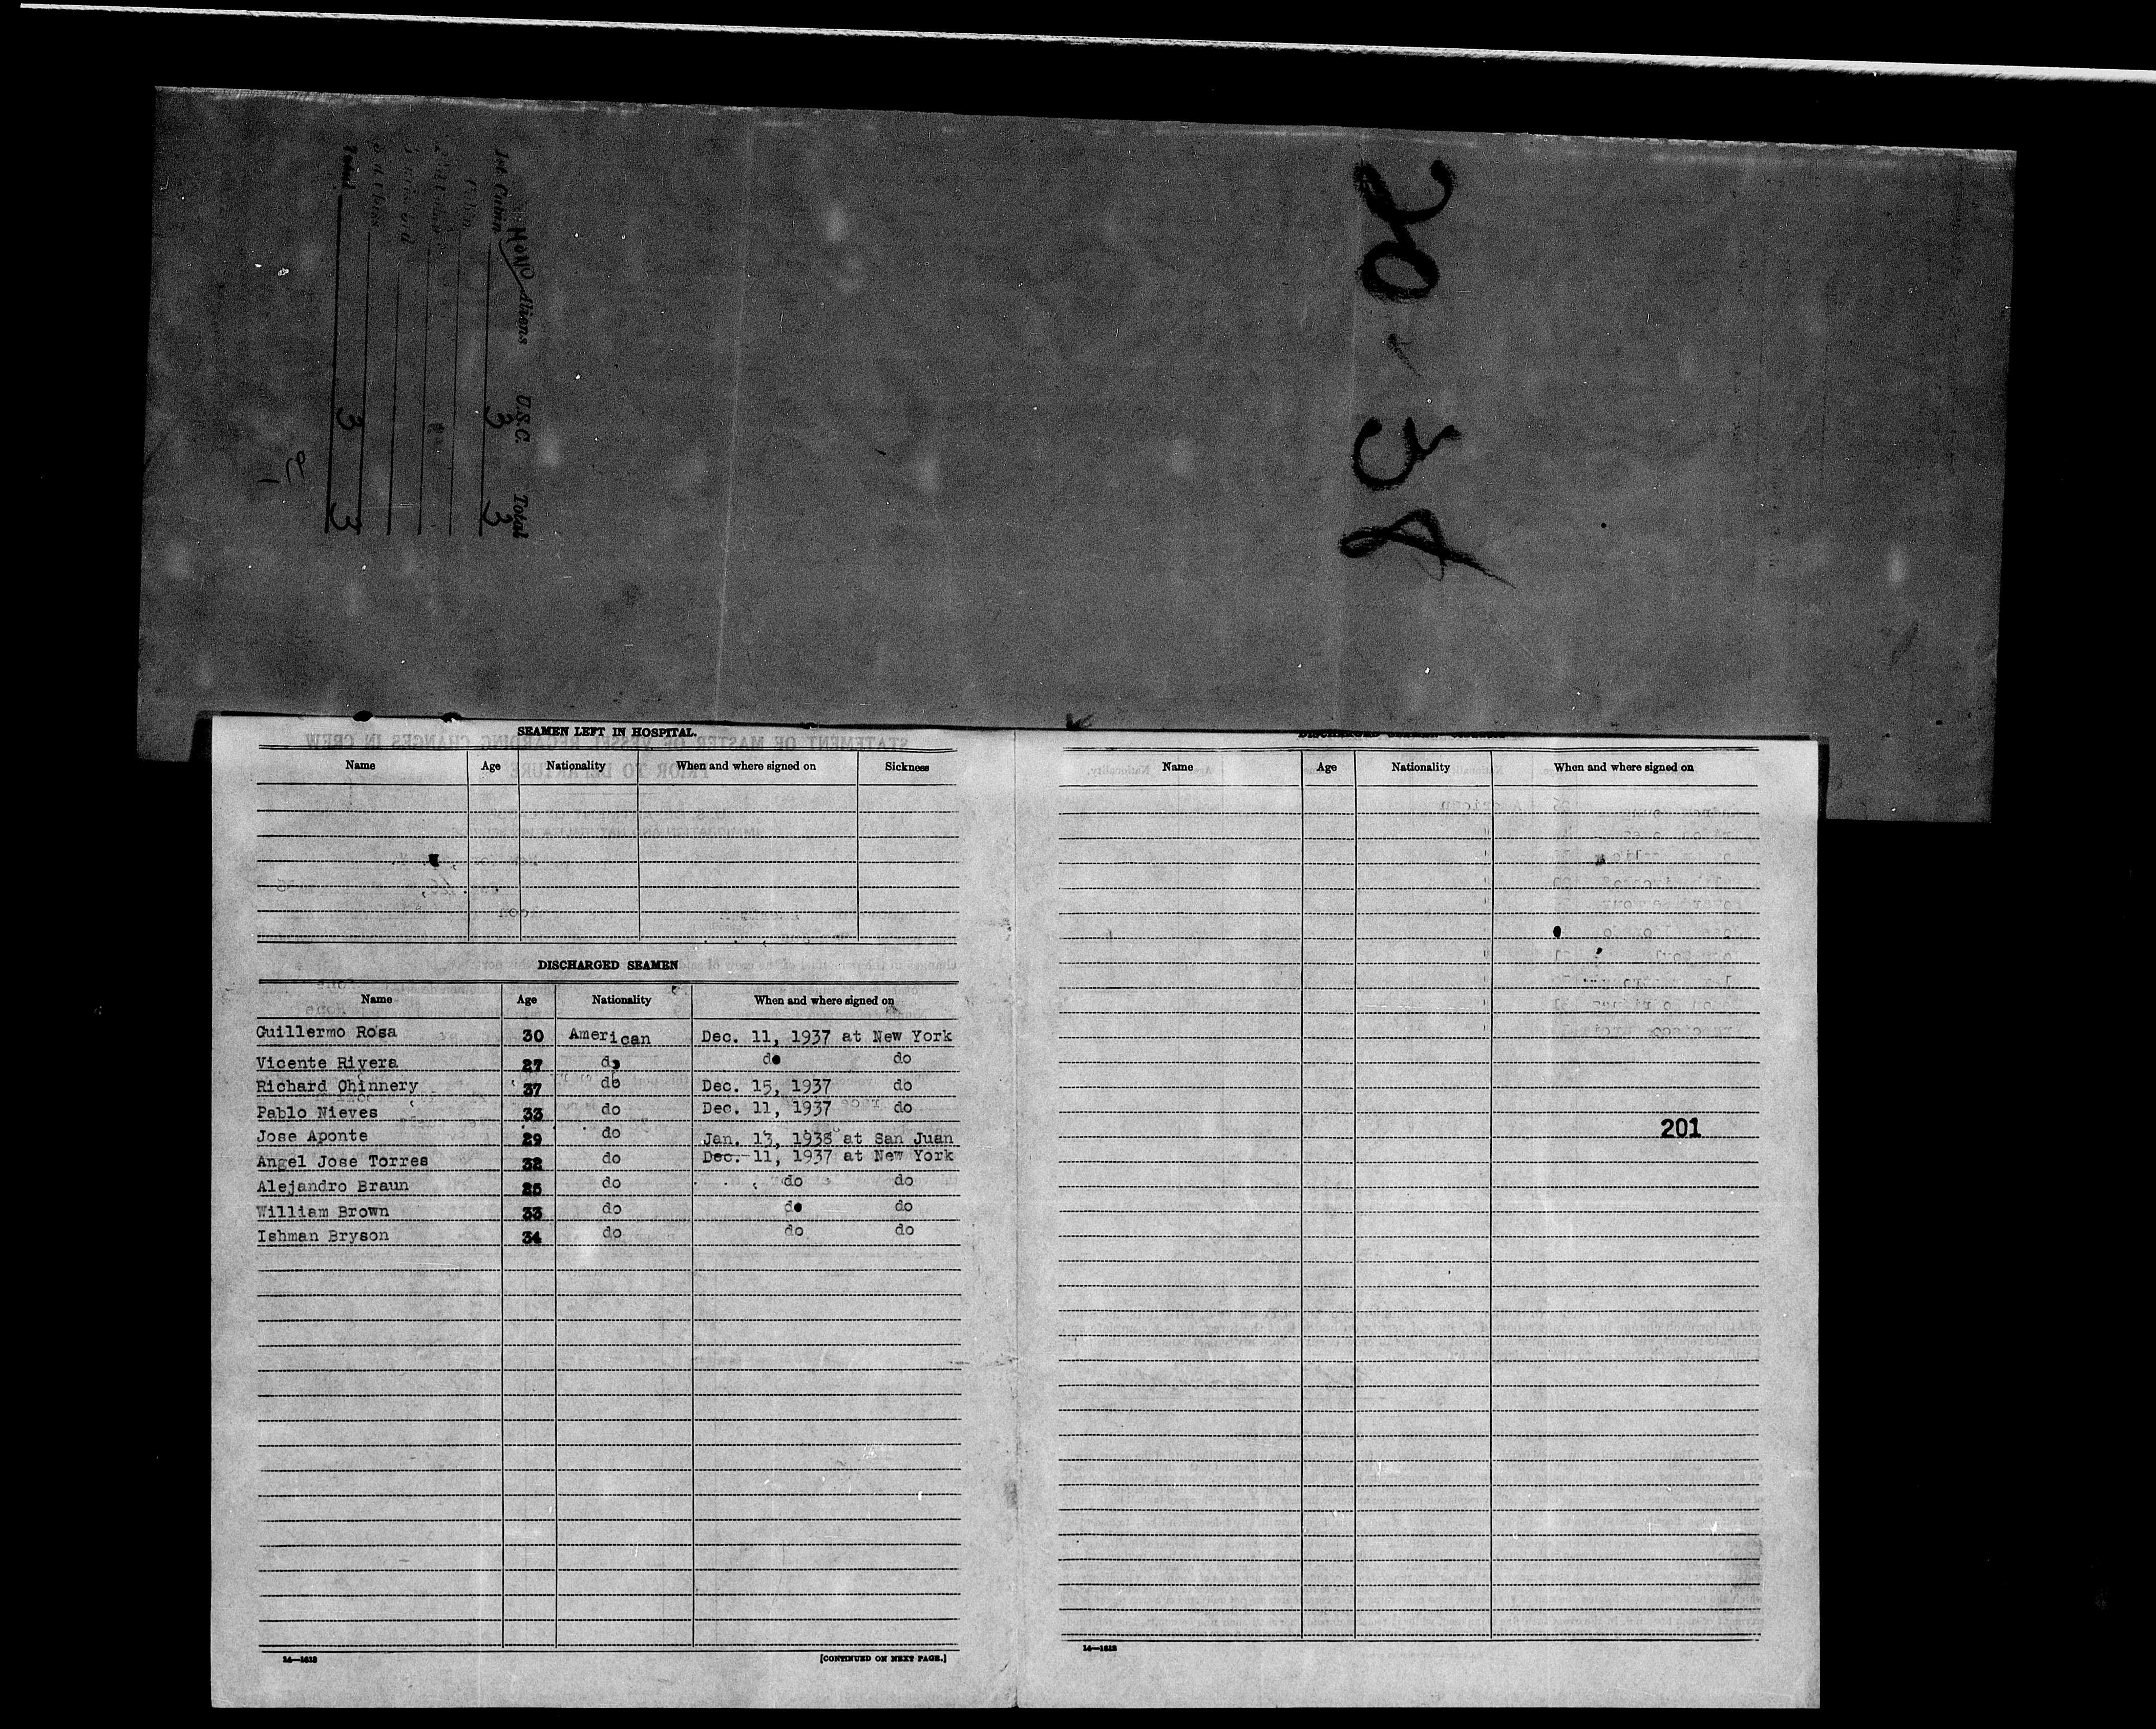 How Aliens U.S.C. Total
1st Cabin 3 3
Total 3 3
SEAMEN LEFT IN HOSPITAL.
Name Age Nationality When and where signed on Sickness
DISCHARGED SEAMEN
Name Age Nationality When and where signed on
Guillermo Rosa 30 American Dec. 11, 1937 at New York
Vicente Rivera 27 do do do
Richard Chinnery 37 do Dec. 15, 1937 do
Pablo Nieves 33 do Dec. 11, 1937 do
Jose Aponte 29 do Jan. 13, 1938 at San Juan
Angel Jose Torres 32 do Dec. 11, 1937 at New York
Alejandro Braun 25 do do do
William Brown 33 do do do
Ishman Bryson 34 do do do
14—1613
[CONTINUED ON NEXT PAGE.]
DISCHARGED SEAMEN
Name Age Nationality When and where signed on
201
14—1613